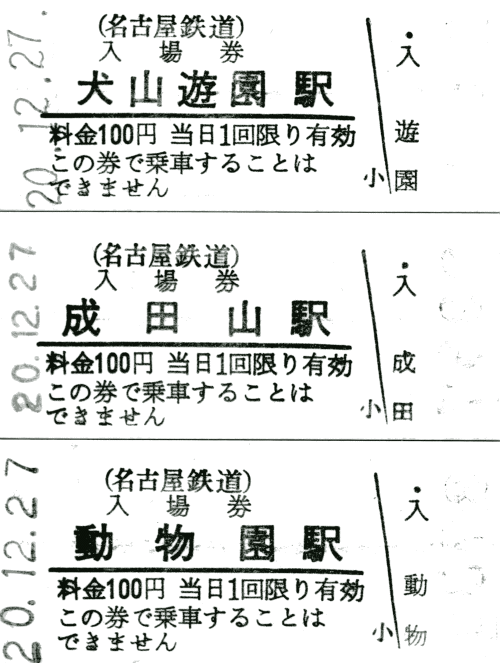 20.12.27.
(名古屋鉄道)
入場券
犬山遊園駅
料金100円 当日1回限り有効
この券で乗車することは
できません
・入
遊園
小
20.12.27
(名古屋鉄道)
入場券
成田山駅
料金100円 当日1回限り有効
この券で乗車することは
できません
・入
成田
小
20.12.27
(名古屋鉄道)
入場券
動物園駅
料金100円 当日1回限り有効
この券で乗車することは
できません
・入
動物
小